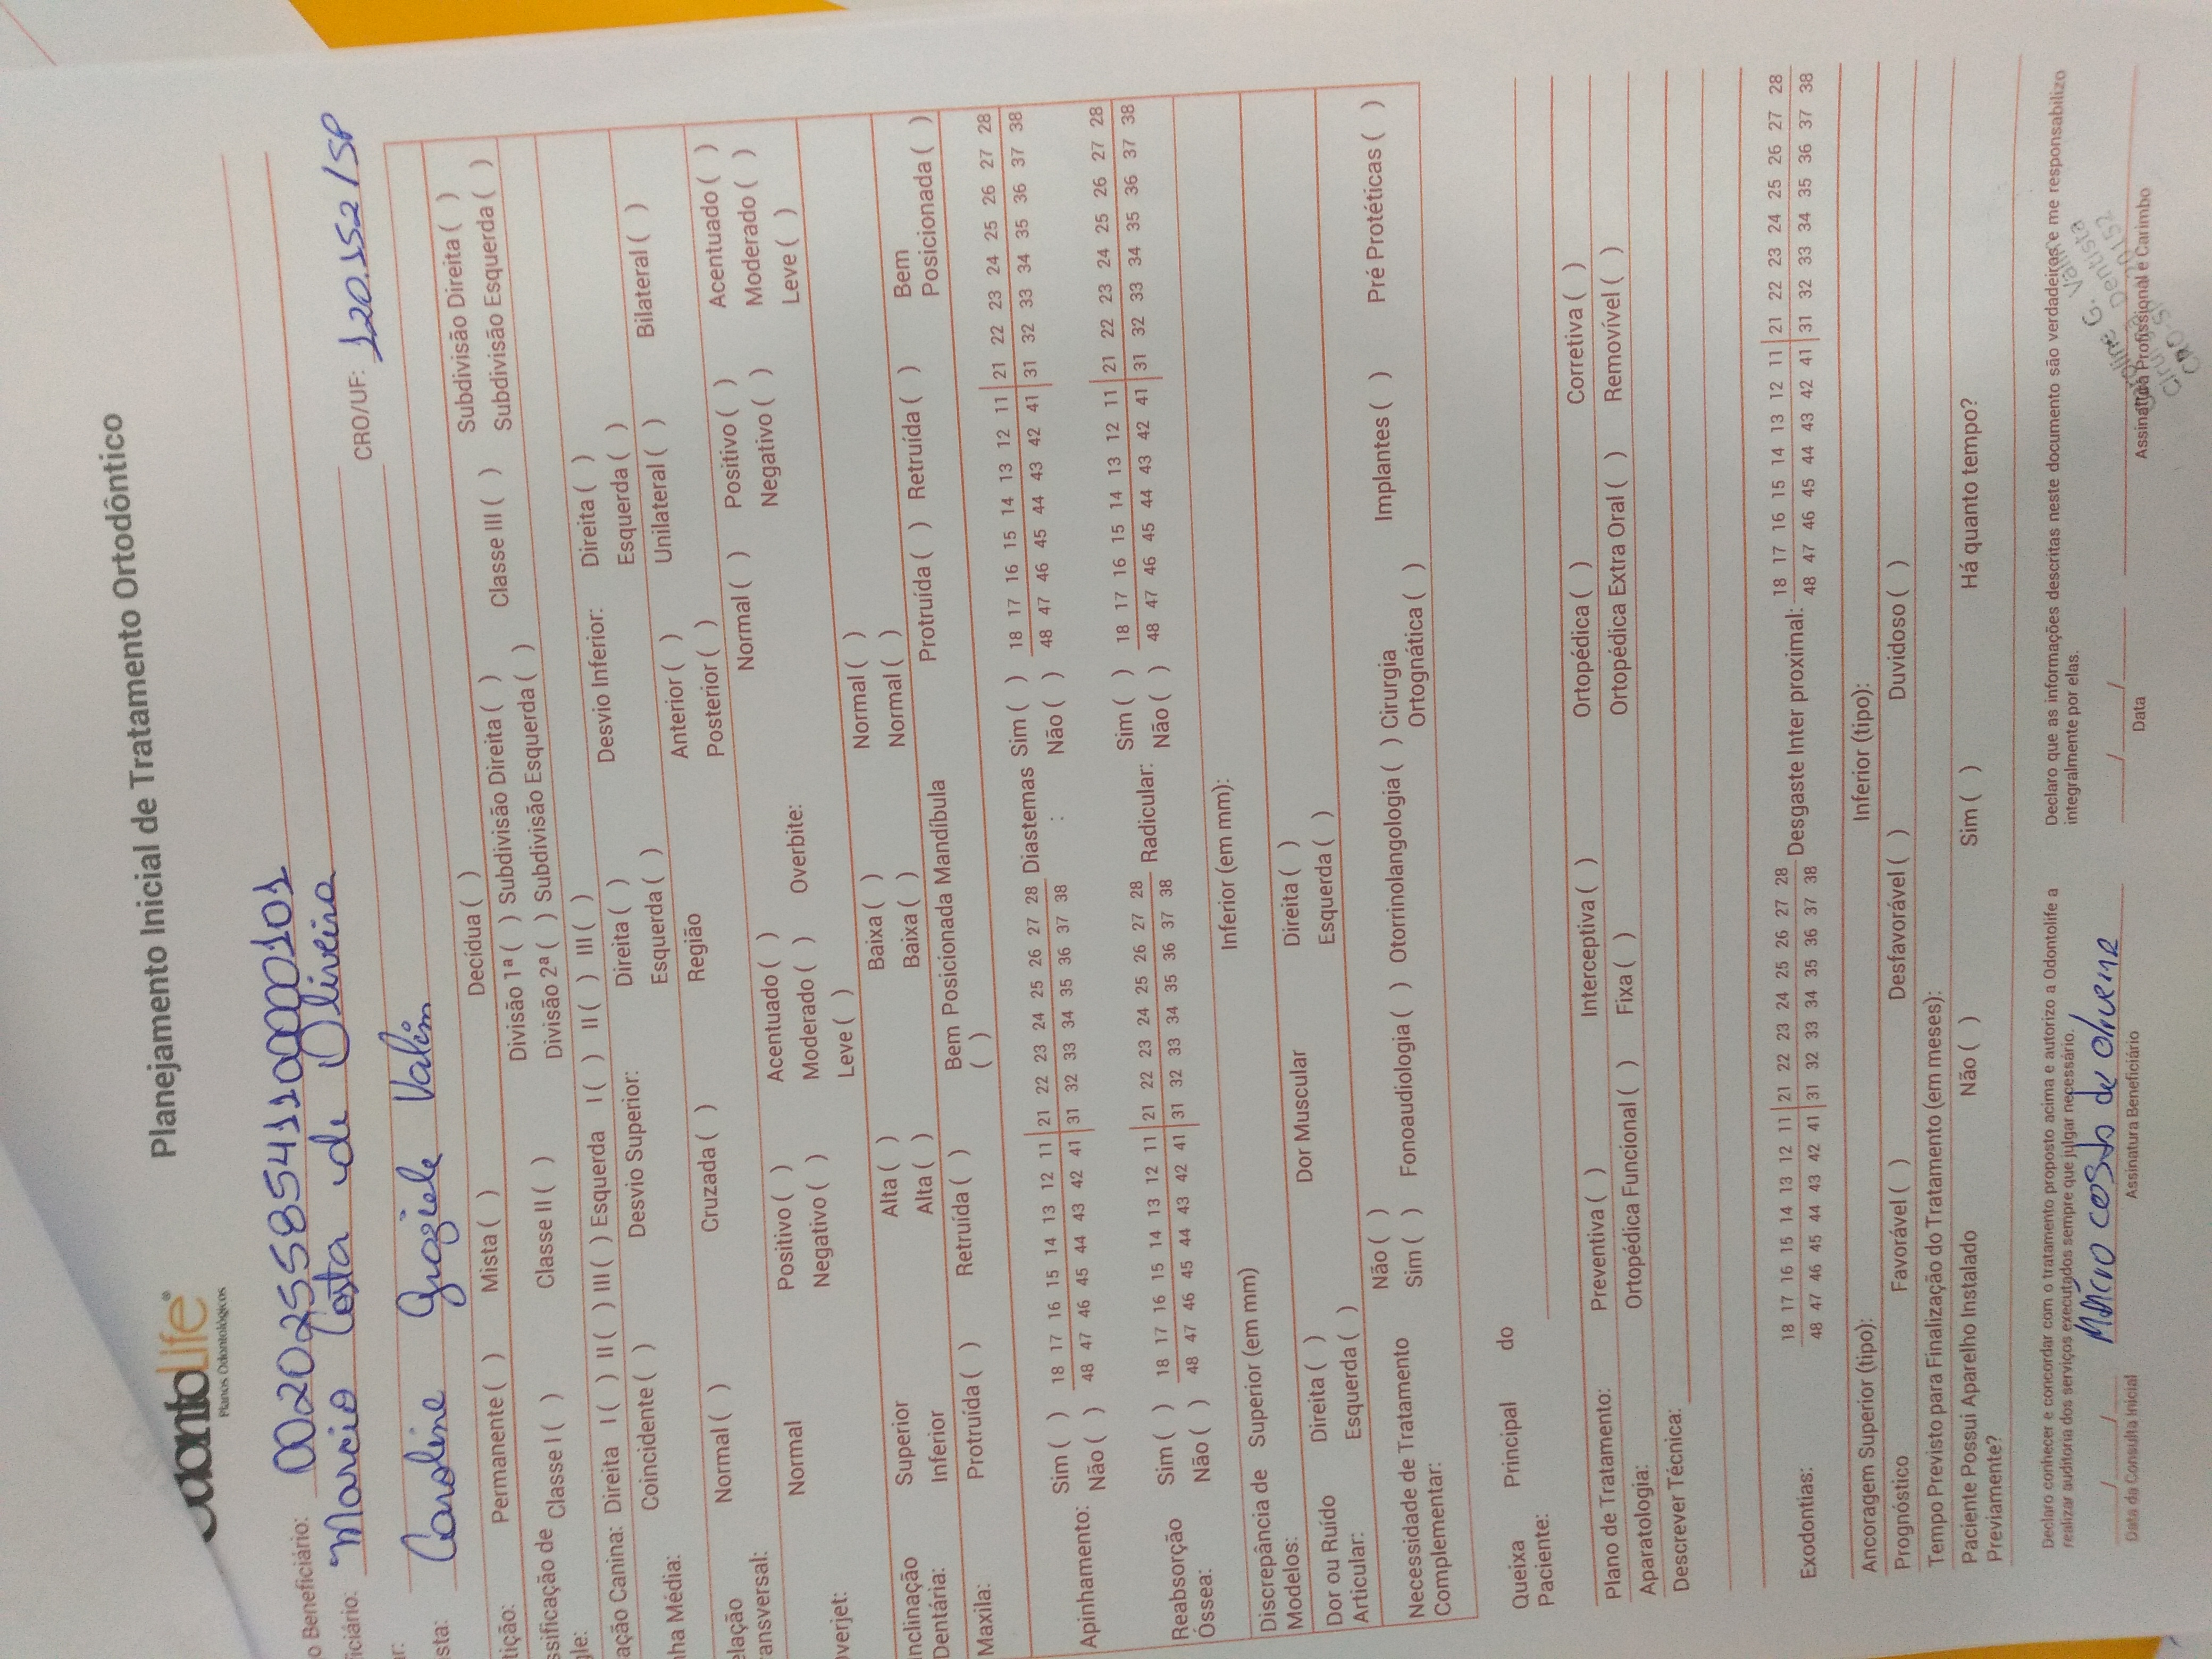 OdontoLife®
Planos Odontológicos
Planejamento Inicial de Tratamento Ortodôntico
o Beneficiário: 00202558541100000101
ficiário: Marcio Costa de Oliveira
CRO/UF: 120.152/SP
sta: Caroline Graziele Valim
tição: Permanente ( ) Mista ( ) Decídua ( )
ssificação de Classe I ( ) Classe II ( ) Divisão 1ª ( ) Subdivisão Direita ( ) Classe III ( ) Subdivisão Direita ( )
gle: Divisão 2ª ( ) Subdivisão Esquerda ( ) Subdivisão Esquerda ( )
ação Canina: Direita I ( ) II ( ) III ( ) Esquerda I ( ) II ( ) III ( )
nha Média: Coincidente ( ) Desvio Superior: Direita ( ) Desvio Inferior: Direita ( )
Esquerda ( ) Esquerda ( )
elação Normal ( ) Cruzada ( ) Região Anterior ( ) Unilateral ( ) Bilateral ( )
ansversal: Posterior ( )
verjet: Normal Positivo ( ) Acentuado ( ) Overbite: Normal ( ) Positivo ( ) Acentuado ( )
Negativo ( ) Moderado ( ) Negativo ( ) Moderado ( )
Leve ( ) Leve ( )
nclinação Superior Alta ( ) Baixa ( ) Normal ( )
Dentária: Inferior Alta ( ) Baixa ( ) Normal ( )
Maxila: Protruída ( ) Retruída ( ) Bem Posicionada Mandíbula Protruída ( ) Retruída ( ) Bem
( ) Posicionada ( )
Apinhamento: Sim ( ) 18 17 16 15 14 13 12 11 21 22 23 24 25 26 27 28 Diastemas Sim ( ) 18 17 16 15 14 13 12 11 21 22 23 24 25 26 27 28
Não ( ) 48 47 46 45 44 43 42 41 31 32 33 34 35 36 37 38 : Não ( ) 48 47 46 45 44 43 42 41 31 32 33 34 35 36 37 38
Reabsorção Sim ( ) 18 17 16 15 14 13 12 11 21 22 23 24 25 26 27 28 Radicular: Sim ( ) 18 17 16 15 14 13 12 11 21 22 23 24 25 26 27 28
Óssea: Não ( ) 48 47 46 45 44 43 42 41 31 32 33 34 35 36 37 38 Não ( ) 48 47 46 45 44 43 42 41 31 32 33 34 35 36 37 38
Discrepância de Superior (em mm) Inferior (em mm):
Modelos:
Dor ou Ruído Direita ( ) Dor Muscular Direita ( )
Articular: Esquerda ( ) Esquerda ( )
Necessidade de Tratamento Não ( ) Fonoaudiologia ( ) Otorrinolangologia ( ) Cirurgia Implantes ( ) Pré Protéticas ( )
Complementar: Sim ( ) Ortognática ( )
Queixa Principal do
Paciente:
Plano de Tratamento: Preventiva ( ) Interceptiva ( ) Ortopédica ( ) Corretiva ( )
Aparatologia: Ortopédica Funcional ( ) Fixa ( ) Ortopédica Extra Oral ( ) Removível ( )
Descrever Técnica:
Exodontias: 18 17 16 15 14 13 12 11 21 22 23 24 25 26 27 28 Desgaste Inter proximal: 18 17 16 15 14 13 12 11 21 22 23 24 25 26 27 28
48 47 46 45 44 43 42 41 31 32 33 34 35 36 37 38 48 47 46 45 44 43 42 41 31 32 33 34 35 36 37 38
Ancoragem Superior (tipo): Inferior (tipo):
Prognóstico Favorável ( ) Desfavorável ( ) Duvidoso ( )
Tempo Previsto para Finalização do Tratamento (em meses):
Paciente Possui Aparelho Instalado Não ( ) Sim ( ) Há quanto tempo?
Previamente?
Declaro conhecer e concordar com o tratamento proposto acima e autorizo a Odontolife a
realizar auditoria dos serviços executados sempre que julgar necessário.
Declaro que as informações descritas neste documento são verdadeiras e me responsabilizo
integralmente por elas.
/ / Márcio costa de oliveira / /
Data da Consulta Inicial Assinatura Beneficiário Data Assinatura Profissional e Carimbo
G. Valim
Dentista